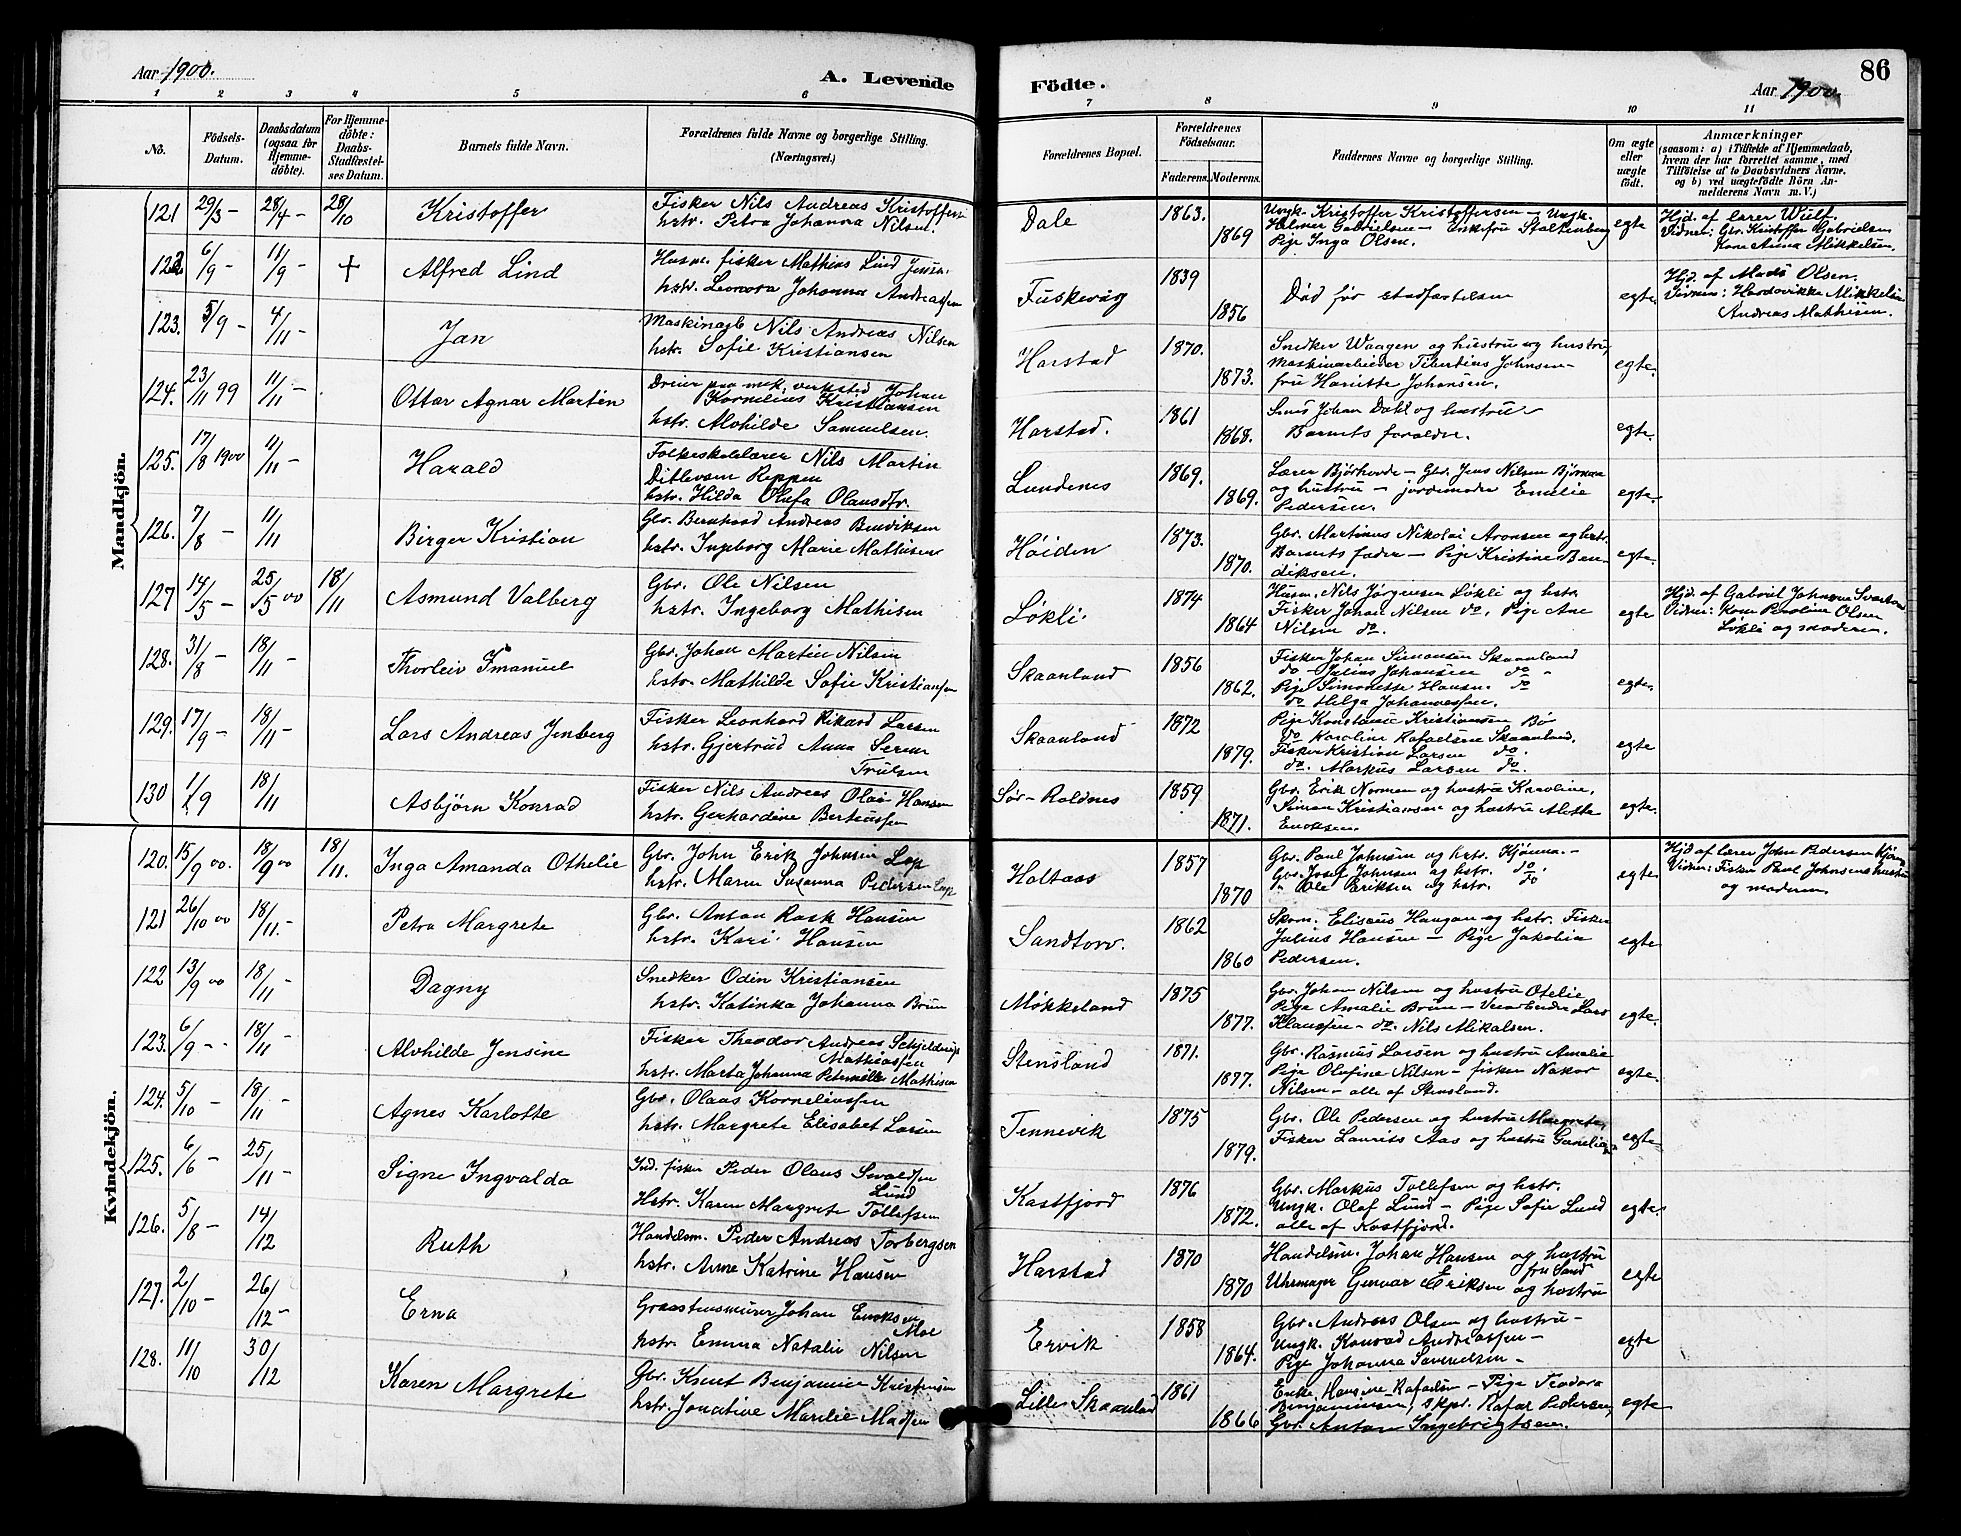 Aar 1900.
A. Levende
Födte.
86
Aar 1900.
1 2 3 4 5 6 7 8 9 10 11
No.
Födsels-Datum.
Daabsdatum (ogsaa for Hjemmedöbte).
For Hjemmedöbte: Daabs-Stadfæstelses Datum.
Barnets fulde Navn.
Forældrenes fulde Navne og borgerlige Stilling. (Næringsvei.)
Forældrenes Bopæl.
Forældrenes Födselsaar.
Faderens. Moderens.
Faddernes Navne og borgerlige Stilling.
Om ægte eller uægte födt.
Anmærkninger
(saasom: a) i Tilfælde af Hjemmedaab, hvem der har forrettet samme, med Tilföielse af to Daabsvidners Navne, og b) ved uægtefödte Börn Anmelderens Navn m. V.)
Mandkjön.
121 29/3 - 28/4 - 28/10 Kristoffer Fisker Nils Andreas Kristoffersen
hstr. Petra Johanna Nilsen.
Dale 1863. 1869 Ungk. Kristoffer Kristoffersen - Ungk.
Helmer Gabrielsen - Enkefru Stoltenberg
Pige Inga Olsen.
egte Hjd. af lærer Wulf.
Vidner: Gbr. Kristoffer Gabrielsen
Kone Anna Mikkelsen.
122 6/9 - 11/9 - + Alfred Lind Husm. fisker Mathias Lind Jensen.
hstr. Leonora Johanna Andreassen
Fuskevåg 1839 1856 Død før stadfæstelsen egte Hjd. af Mads Olsen.
Vidner: Hardovikke Mikkelsen
Andreas Mathisen.
123. 5/9 - 4/11 - Jan Maskinarb Nils Andreas Nilsen
hstr. Sofie Kristiansen
Harstad 1870. 1873. Snedker Waagen og hustru og hustru,
Maskinarbeider Tibertius Johnsen -
fru Hariette Johansen.
egte.
124. 23/11 99 11/11 - Ottar Agnar Martin Dreier paa mek. verksted Johan
Kornelius Kristiansen
hstr. Alvhilde Samuelsen.
Harstad. 1861 1868. Smed Johan Dahl og hustru -
Barnets forældre.
egte.
125. 17/8 1900 11/11 - Harald Folkeskolelærer Nils Martin
Ditlevsen Reppen
hstr. Hilda Olufa Olausdtr.
Lundenes 1869. 1869. Lærer Bjørhovde - Gbr. Jens Nilsen Bjørnaa
og hustru - jordemoder Emelie
Pedersen.
egte.
126. 7/8 - 11/11 Birger Kristian Gbr. Bernhard Andreas Bendiksen
hstr. Ingeborg Marie Mathisen
Høiden 1873. 1870. Gbr. Martinus Nikolai Aronsen og hstr.
Barnets fader - Pige Kristine Ben-
diksen.
egte.
127 14/5 - 25/5 00 18/11 Asmund Valberg Gbr. Ole Nilsen
hstr. Ingeborg Mathisen
Løkli. 1874 1864 Husm. Nils Jørgensen Løkli og hstr
Fisker Johan Nilsen do, Pige Ane
Nilsen do.
egte Hjd. af Gabriel Johnsen
Vidner: Kone Paroline Olsen
Løkli og moderen.
128. 31/8 - 18/11 - Thorleiv Imanuel Gbr. Johan Martin Nilsen
hstr. Mathilde Sofie Kristiansen
Skaanland 1856 1862. Fisker Johan Simonsen Skaanland
do - Julius Johansen do
Pige Simonette Hansen do
do Helga Johannessen.
egte.
129. 17/9 - 18/11 - Lars Andreas Jenberg Fisker Leonhard Rikard Larsen
hstr. Gjertrud Anna Serene
Trulsen
Skaanland 1872 1879. Pige Konstanse Kristiansen Bø
do Karoline Rafaelsen Skaanland.
Fisker Kristian Larsen do.
do. Markus Larsen do.
egte
130 1/9 18/11 Asbjørn Konrad Fisker Nils Andreas Olai Hansen
hstr. Gerhardine Berteussen
Sør-Roldnes 1859 1871. Gbr. Erik Normen og hustru Karoline,
Simon Kristiansen og hustru Mette
Enoksen.
egte.
Kvindekjön.
120. 15/9 00. 18/9 00 18/11. Inga Amanda Othelie Gbr. John Erik Johnsen Lap
hstr. Maren Susanna Pedersen Lap
Holtaas 1857 1870 Gbr. Paul Johnsen og hstr. Kjønna. -
Gbr. Josef Johnsen og hstr. do.
" Ole Eriksen og hstr. do
egte Hjd af lærer John Pedersen Kjønna
Vidner: Fisker Paul Johnsens hustru
og moderen
121 26/10 00 18/11. - Petra Margrete Gbr. Anton Rask Hansen
hstr. Kari Hansen
Sandtorv. 1862 1860 Skom. Elisæus Haugan og hstr. Fisker
Julius Hansen - Pige Jakobia
Pedersen.
egte
122 13/9 00 18/11 - Dagny Snedker Odin Kristiansen
hstr. Katinka Johanna Brun
Møkkeland 1875 1877. Gbr. Johan Nilsen og hustru Otelie
Pige Amalie Brun - Veiarbeider Lars
Klaussen - do. Nils Mikalsen.
egte.
123. 6/9 - 18/11 - Alvhilde Jensine Fisker Theodor Andreas Schjelderup
Mathiassen
hstr. Marta Johanna Petrnelle Mathisen
Stensland 1871. 1877. Gbr. Rasmus Larsen og hustru Amalie
Pige Olufine Nilsen - fisker Nakor
Nilsen - alle af Stensland.
egte.
124. 5/10 - 18/11 - Agnes Karlotte Gbr. Olaas Korneliussen
hstr. Margrete Elisabet Larsen
Tennevik 1875 1879. Gbr. Ole Pedersen og hustru Margrete,
Fisker Laurits Aas og hustru
egte
125. 6/6 - 25/11 - Signe Ingvalda Ind. fisker Peder Olaus Sivaldsen
Lund
Hstr. Karen Margrete Tollefsen
Kastfjord 1876 1872. Gbr. Markus Tollefsen og hstr.
Ungk. Olaf Lund - Pige Sofie Lund
alle af Kastfjord.
egte.
126. 5/8 - 14/12 Ruth Handelsm. Peder Andreas Torbergsen
hstr. Anne Katrine Hansen
Harstad 1870 1870 Handelsm. Johan Hansen og hustru
fru Sand
Uhrmager Gunvar Eriksen og hustru
egte
127. 2/10 - 26/12 - Erna Graastensmurer Johan Enoksen
Moe
hstr. Emma Natalie Nilsen
Ervik 1858 1864. Gbr. Andreas Olsen og hustru -
Ungk. Konrad Andreassen -
Pige Johanna Severinsen -
egte
128. 11/10 30/12 Karen Margrete Gbr. Knut Benjamin Kristensen
hstr. Jonetine Marelie Madsen
Lille Skaanland 1861 1866 Enke Hansine Rafaelsen - Pige Teodora
Benjaminsen, skpr. Rafar Pedersen,
Gbr. Anton Ingebrigtsen.
egte